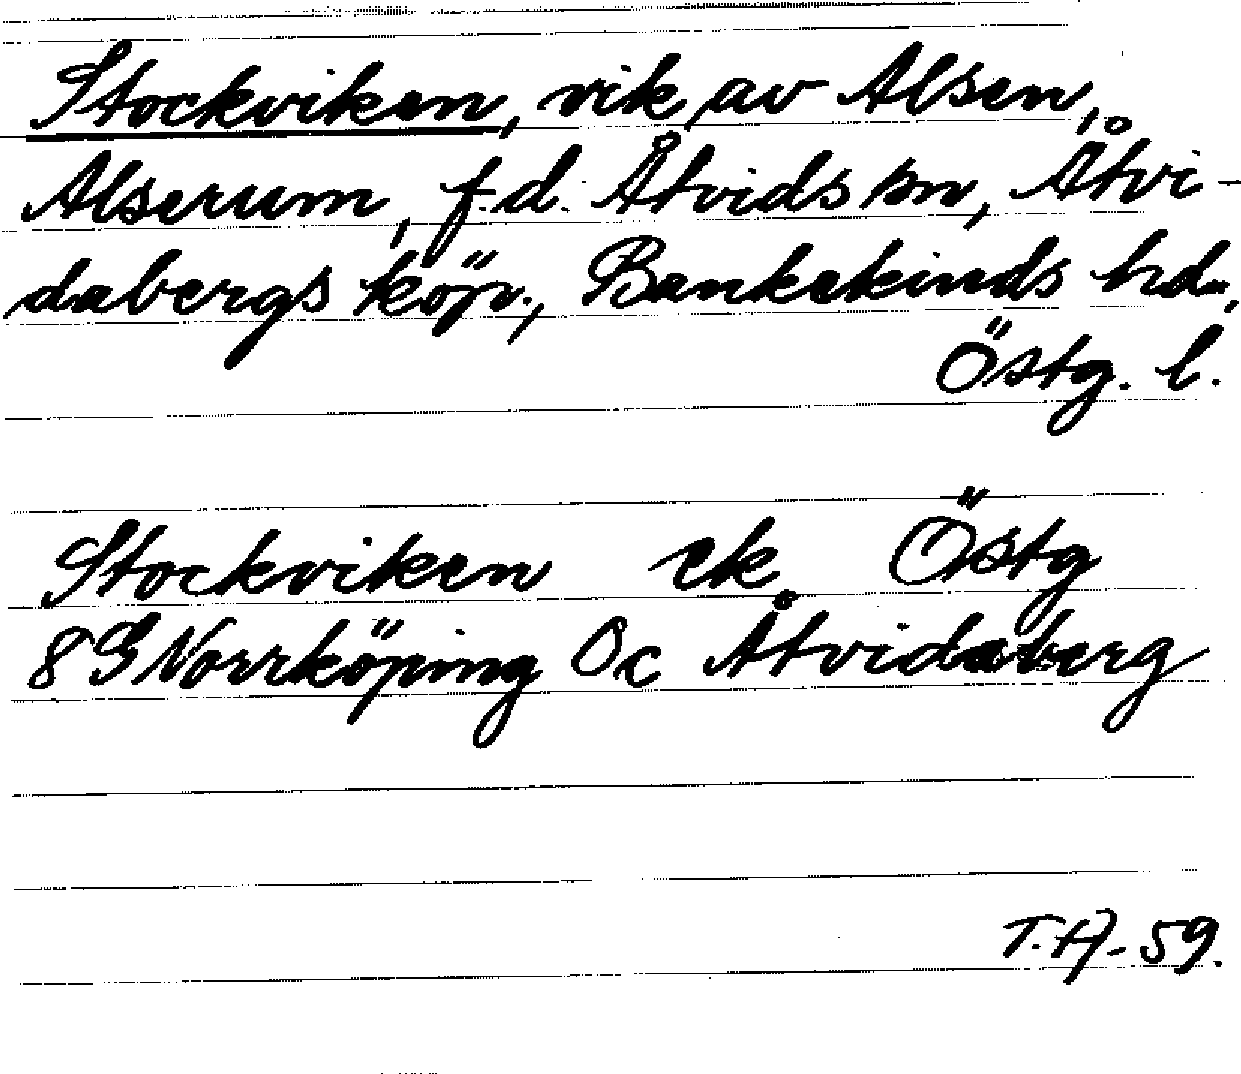 Stockviken, vik av Alsen,
Alserum, f.d. Åtvids sn, Åtvi-
dabergs köp., Bankekinds hd,
Östg. l.
Stockviken ek Östg
8G Norrköping Oc Åtvidaberg
T.A-59.